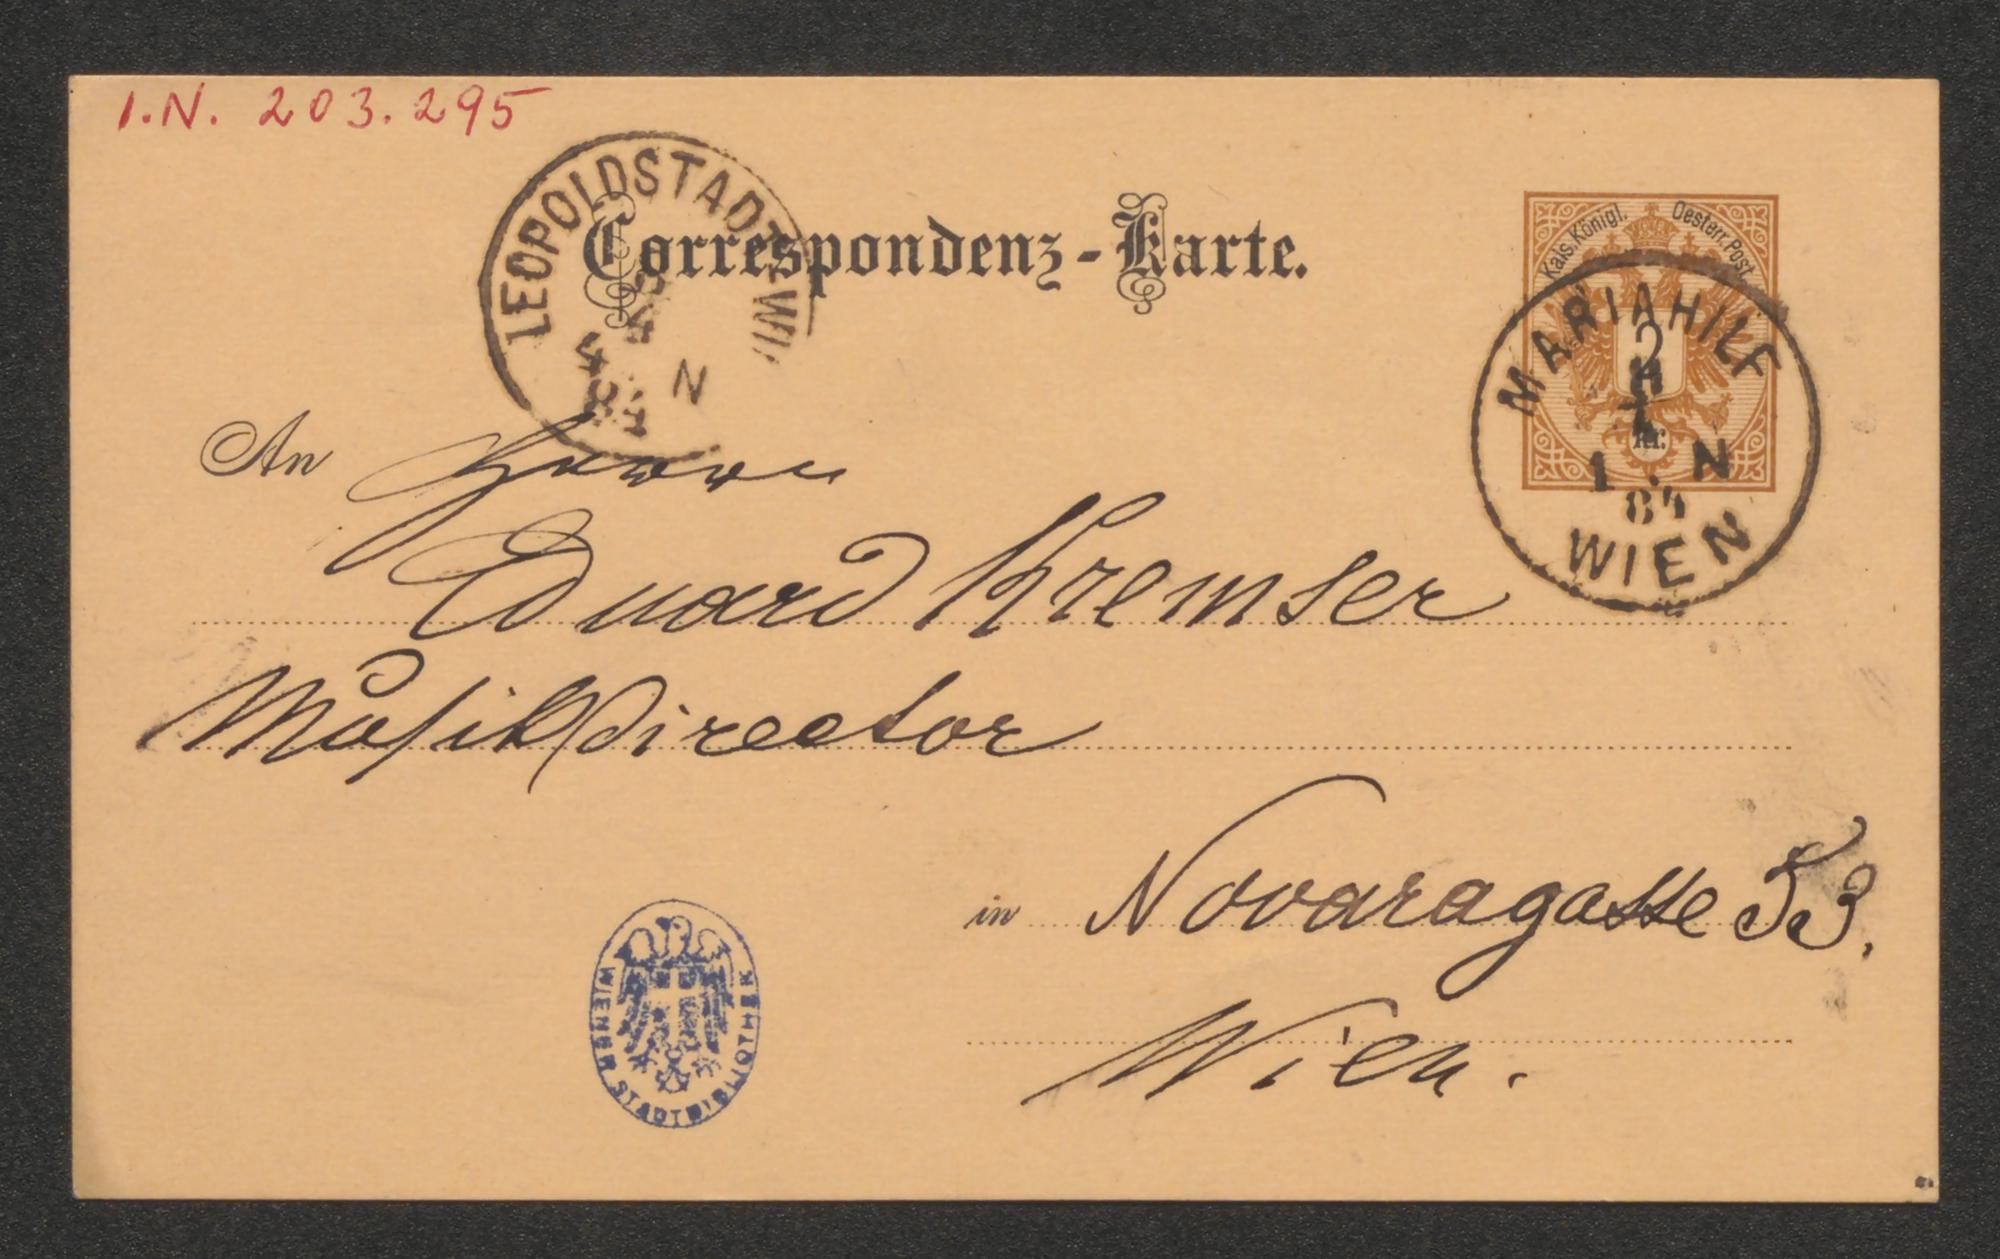 I.N. 203.295
LEOPOLDSTADT-WI
4 N
Correspondenz-Karte.
Kais. Königl. Oesterr. Post
2 kr.
MARIAHILF
1 N
84
WIEN
An Herrn
Eduard Kremser
Musikdirector
in Novaragasse 53.
Wien.
WIENER STADTBIBLIOTHEK